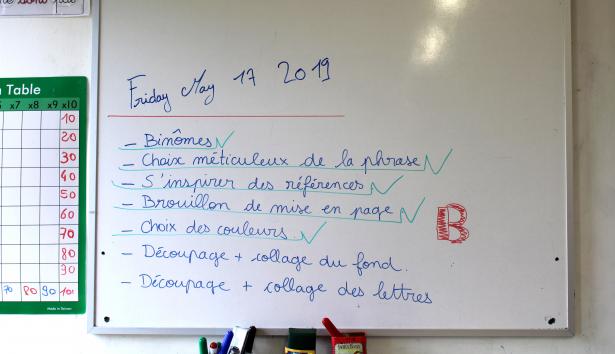 Table
x7 x8 x9 x10
10
20
30
40
50
60
70
80
90
70 80 90 100
Made in Taiwan
Friday May 17 2019
- Binômes ✓
- Choix méticuleux de la phrase ✓
- S'inspirer des références ✓
- Brouillon de mise en page ✓
- Choix des couleurs. ✓
- Découpage + collage du fond.
- Découpage + collage des lettres
B